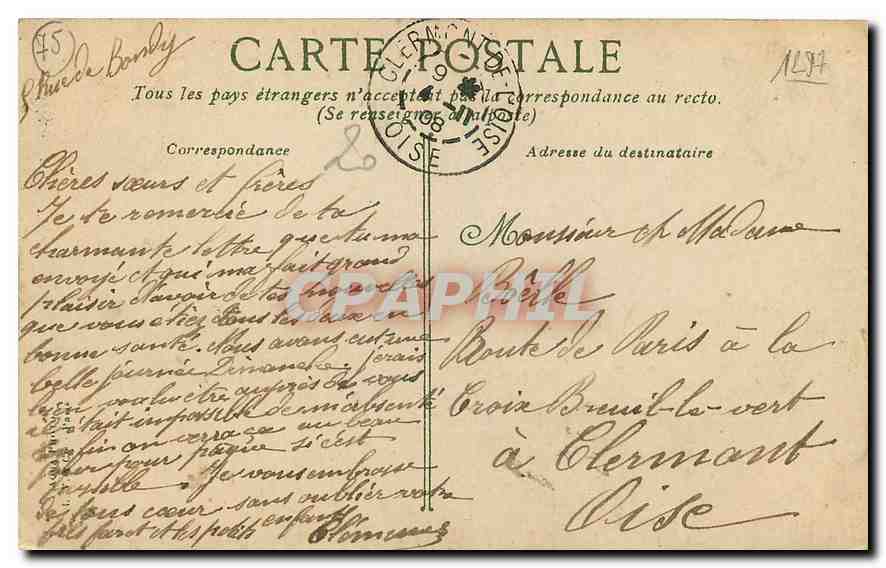 75
Rue de Bondy
CARTE POSTALE
1297
Tous les pays étrangers n'acceptent pas la correspondance au recto.
(Se renseigner à la poste)
CLERMONT-DE-L'OISE
OISE
20
Correspondance
Adresse du destinataire
Chères sœurs et frères
Je te remercie de ta
charmante lettre que tu ma
envoyé et qui ma fait grand
plaisir d'avoir de tes nouvelles
que vous étiez tous les deux en
bonne santé. Nous avons eut une
belle journée Dimanche. J'erais
bien voulu être auprès de vous
c'était impossible de m'absenté
enfin on verra ça au beau
jour pour paque si c'est
possible. Je vous embrasse
de tous cœur sans oublier votre
et les petits enfants
Clémence
Monsieur et Madame
Route de Paris à la
Croix Breuil-le-vert
à Clermont
Oise
CPAPHIL